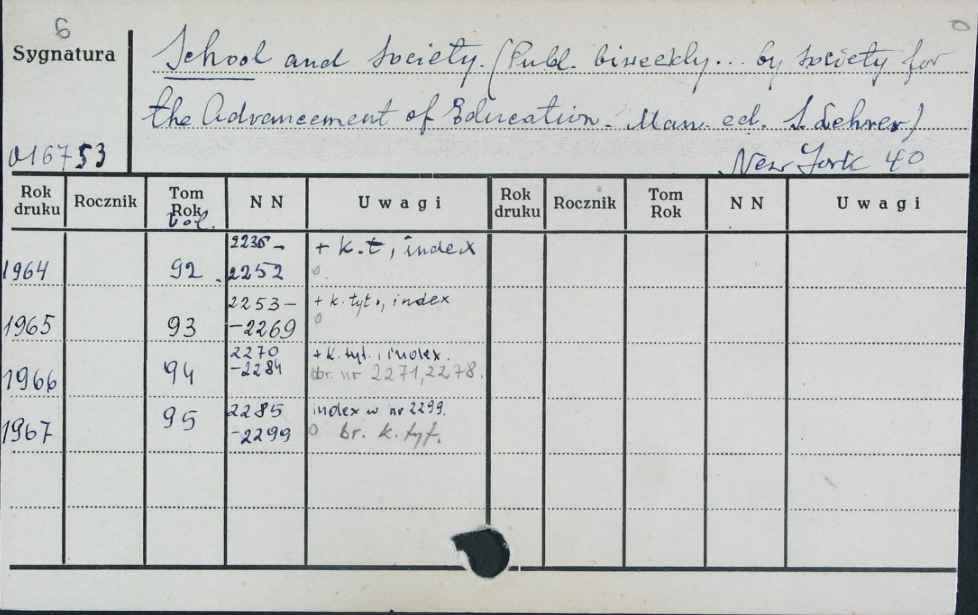 6
Sygnatura
School and Society. (Publ. biweekly... by Society for
the Advancement of Education. Man. ed. S. Lehrer)
016753
New York 40
Rok druku Rocznik Tom Rok vol. N N Uwagi Rok druku Rocznik Tom Rok N N Uwagi
2236-
+ k.t, index
1964 92. 2252 0.
2253- + k. tyt., index
1965 93 -2269 0
2270 + k. tyt., index.
1966 94 -2284 br. nr 2271, 2278.
2285 index w nr 2299.
1967 95 -2299 0 br. k. tyt.